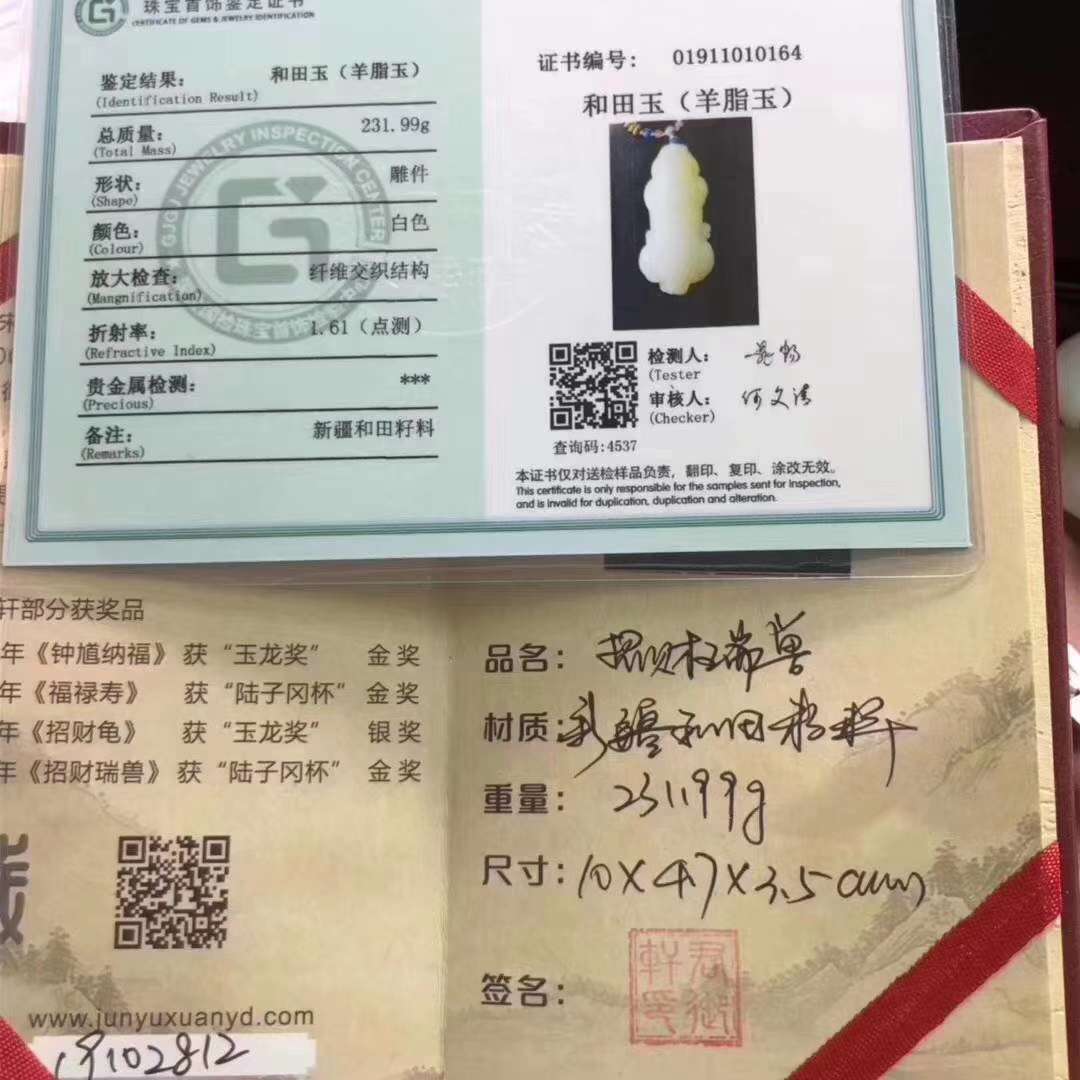 珠宝首饰鉴定证书
CERTIFICATE OF GEMS & JEWELRY IDENTIFICATION
鉴定结果： 和田玉（羊脂玉）
(Identification Result)
总质量： 231.99g
(Total Mass)
形状： 雕件
(Shape)
颜色： 白色
(Colour)
放大检查： 纤维交织结构
(Mangnification)
折射率： 1.61（点测）
(Refractive Index)
贵金属检测： ***
(Precious)
备注： 新疆和田籽料
(Remarks)
GJGJ JEWELRY INSPECTION CENTER
证书编号： 01911010164
和田玉（羊脂玉）
检测人：
(Tester
审核人： 何文清
(Checker)
查询码:4537
本证书仅对送检样品负责，翻印、复印、涂改无效。
This certificate is only responsible for the samples sent for inspection,
and is invalid for duplication, duplication and alteration.
轩部分获奖品
年《钟馗纳福》 获“玉龙奖” 金奖
年《福禄寿》 获“陆子冈杯”金奖
年《招财龟》 获“玉龙奖” 银奖
年《招财瑞兽》 获“陆子冈杯” 金奖
藏
www.junyuxuanyd.com
19102812
品名：
材质：新疆和田籽料
重量： 231.99g
尺寸：10×4.7×3.5cm
签名：